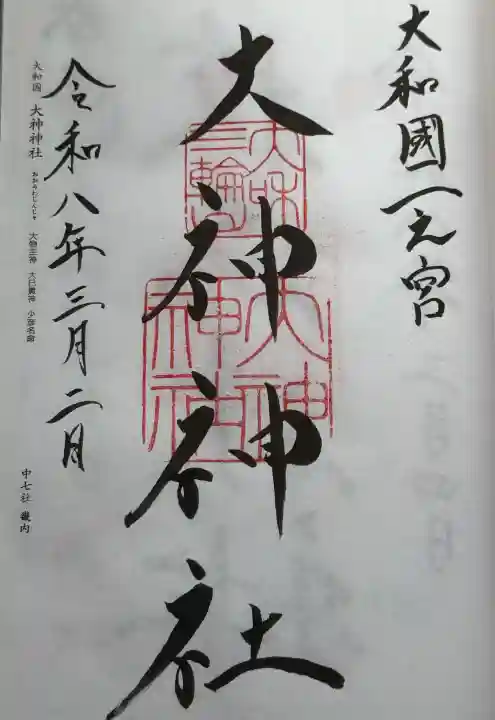 大和國一之宮
大神神社
大和三輪
大神神社
令和八年三月二日
大和国 大神神社 おおみわじんじゃ 大物主神 大己貴神 少彦名命
中七社 畿内